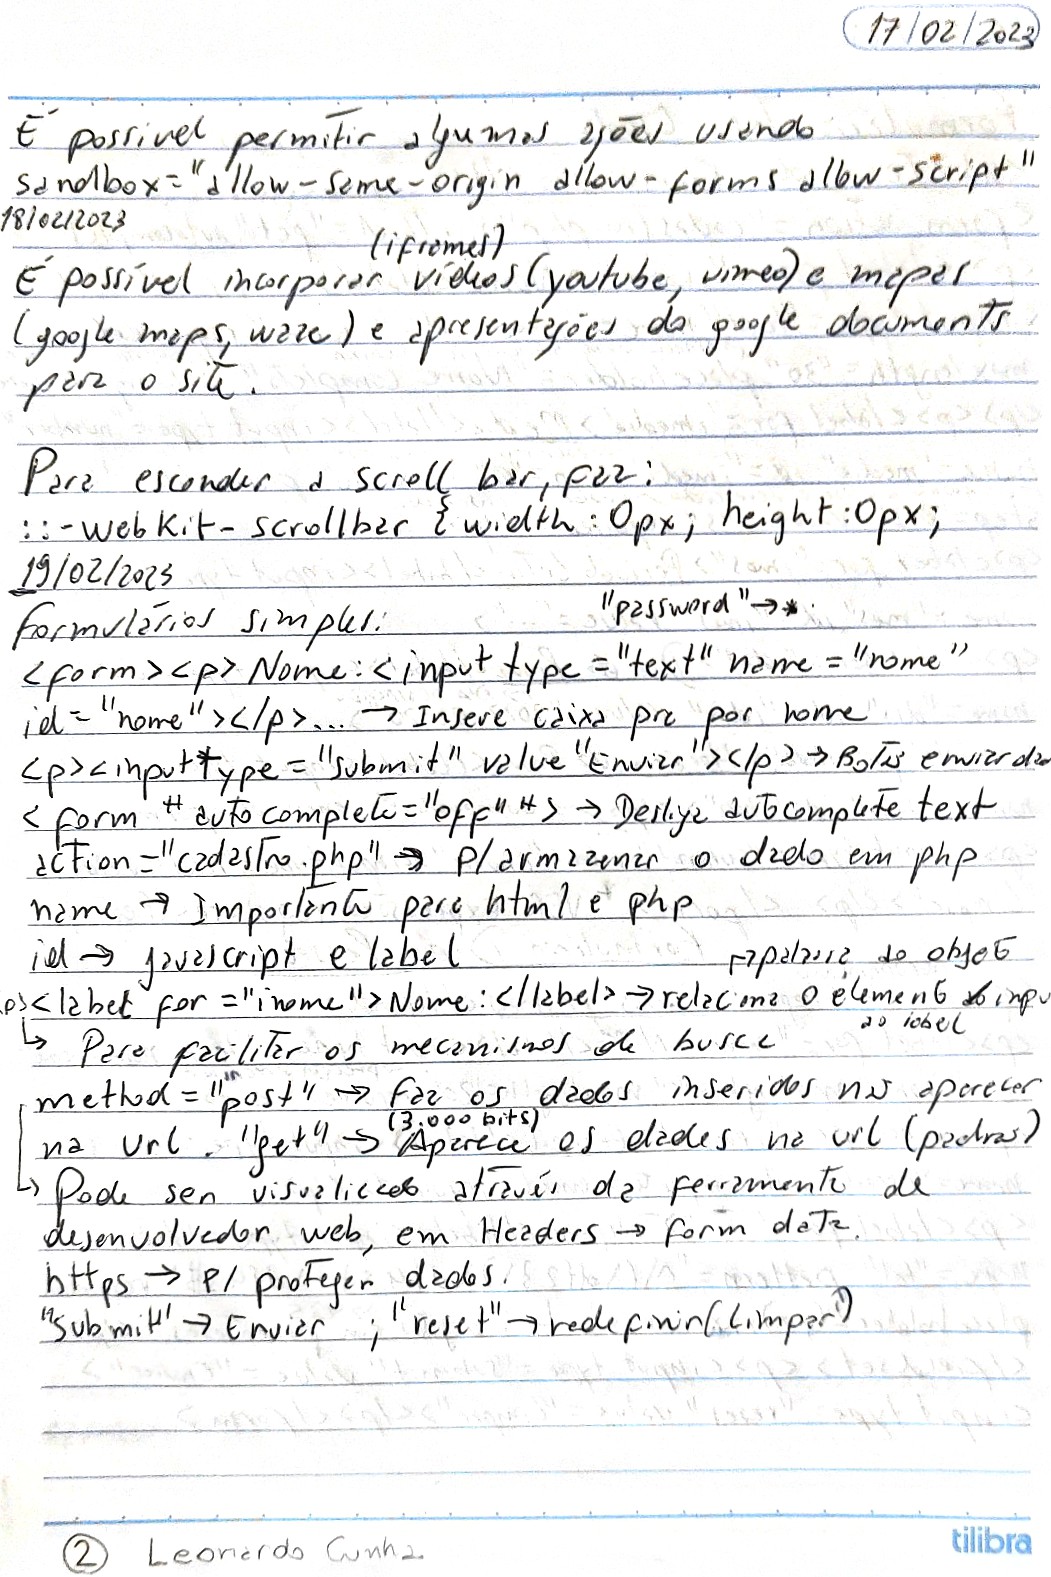 17/02/2023
É possivel permitir algumas ações usando
sandbox="allow-same-origin allow-forms allow-script"
18/02/2023
(iframes)
É possível incorporar vídeos (youtube, vimeo) e mapas
(google maps, waze) e apresentações do google documents
para o site.
Para esconder a scroll bar, faz:
::-webkit-scrollbar { width:0px; height:0px;
19/02/2023
formulários simples:
"password"→*.
<form><p> Nome:<input type="text" name="nome"
id="nome"></p>... → Insere caixa pra por nome
<p><input type="submit" value "Enviar"></p> → Botão enviar
<form # autocomplete="off" #> → Desliga autocomplete text
action="cadastro.php" → p/ armazenar o dado em php
name → Importante para html e php
id → javascript e label
palavra do objeto
<label for="inome">Nome:</label> → relaciona o elemento inpu
ao label
↳ Para facilitar os mecanismos de busca
method="post" → faz os dados inseridos não aparecer
(3.000 bits)
na url. "get" → Aparece os dados na url (padrão)
↳ Pode ser visualizado através da ferramenta de
desenvolvedor web, em Headers → form data.
https → p/ proteger dados.
"submit" → Enviar ; "reset" → redefinir (limpar)
2 Leonardo Cunha.
tilibra